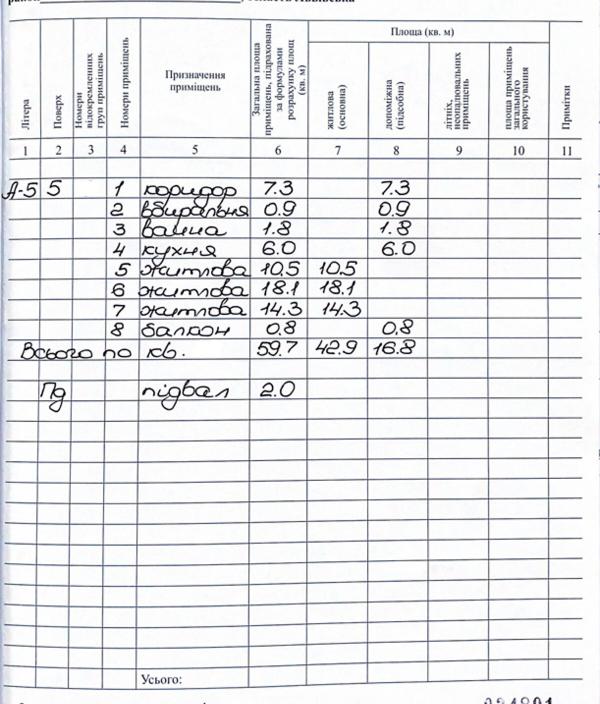 Літера Поверх Номери відокремлених груп приміщень Номери приміщень Призначення приміщень Загальна площа приміщень, підрахована за формулами розрахунку площ (кв. м) Площа (кв. м)
житлова (основна) допоміжна (підсобна) літніх, неопалювальних приміщень площа приміщень загального користування Примітки
1 2 3 4 5 6 7 8 9 10 11
А-5 5 1 коридор 7.3 7.3
2 вбиральня 0.9 0.9
3 ванна 1.8 1.8
4 кухня 6.0 6.0
5 житлова 10.5 10.5
6 житлова 18.1 18.1
7 житлова 14.3 14.3
8 балкон 0.8 0.8
Всього по кв. 59.7 42.9 16.8
Пд підвал 2.0
Усього: